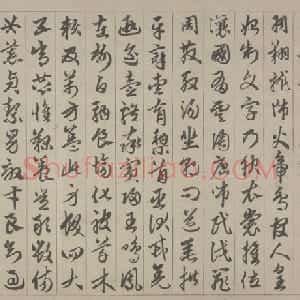 羽翔龍師火帝鳥官人皇
始制文字乃服衣裳推位
讓國有虞陶唐弔民伐罪
周發殷湯坐朝問道垂拱
平章愛育黎首臣伏戎羌
遐邇壹體率賓歸王鳴鳳
在樹白駒食場化被草木
賴及萬方蓋此身髮四大
五常恭惟鞠養豈敢毀傷
女慕貞潔男效才良知過